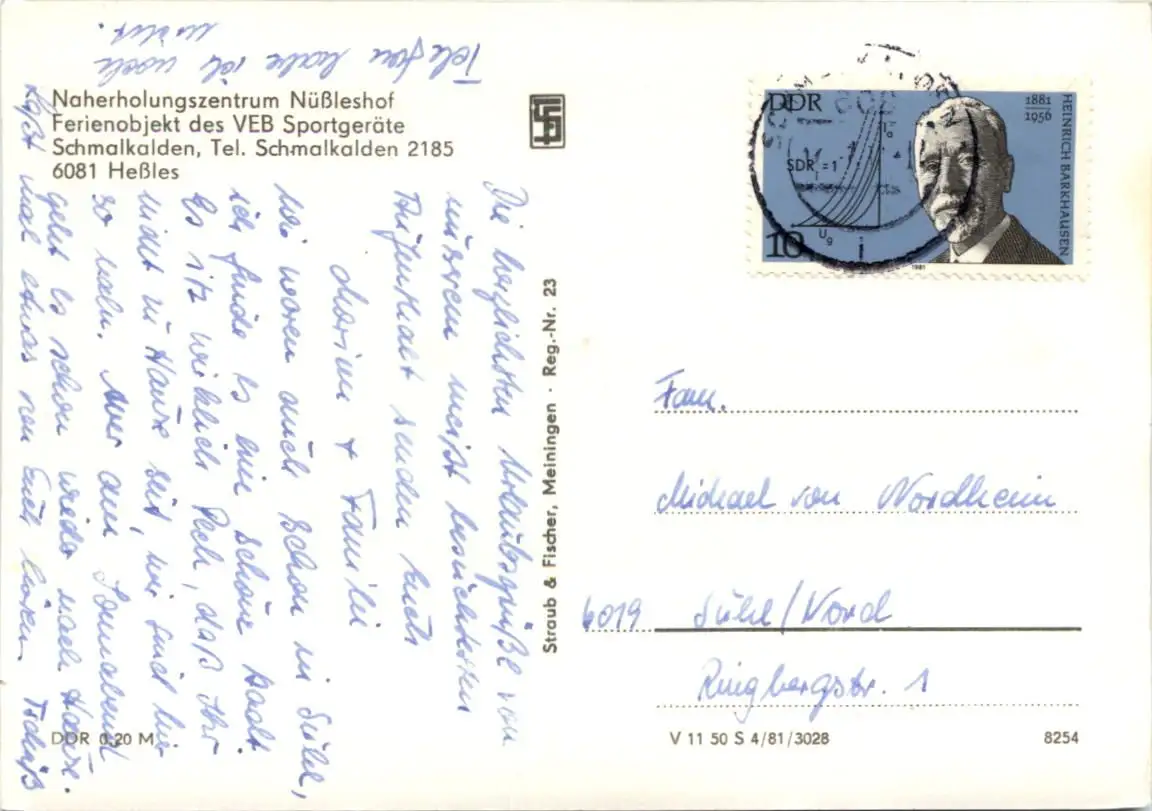 Naherholungszentrum Nüßleshof
Ferienobjekt des VEB Sportgeräte
Schmalkalden, Tel. Schmalkalden 2185
6081 Heßles
Die herzlichsten Urlaubsgrüße von
unserem meist besuchtesten
Aufenthalt senden Euch
+ Familie
Wir waren auch schon in Suhl,
ich finde es eine schöne Stadt
Es ist wirklich Pech, daß Ihr
nicht zu Hause seid, wir sind hier
so nah. Aber am Sonnabend
geht es schon wieder nach Hause.
Laßt mal etwas von Euch hören. Tschüß
Telefon habe ich noch
nicht.
Straub & Fischer, Meiningen · Reg.-Nr. 23
DDR
1881
1956
HEINRICH BARKHAUSEN
SDRi=1
Ia
Ug
10
1981
Fam.
Michael von Nordheim
6019 Suhl/Nord
Ringbergstr. 1
DDR 0,20 M
V 11 50 S 4/81/3028
8254